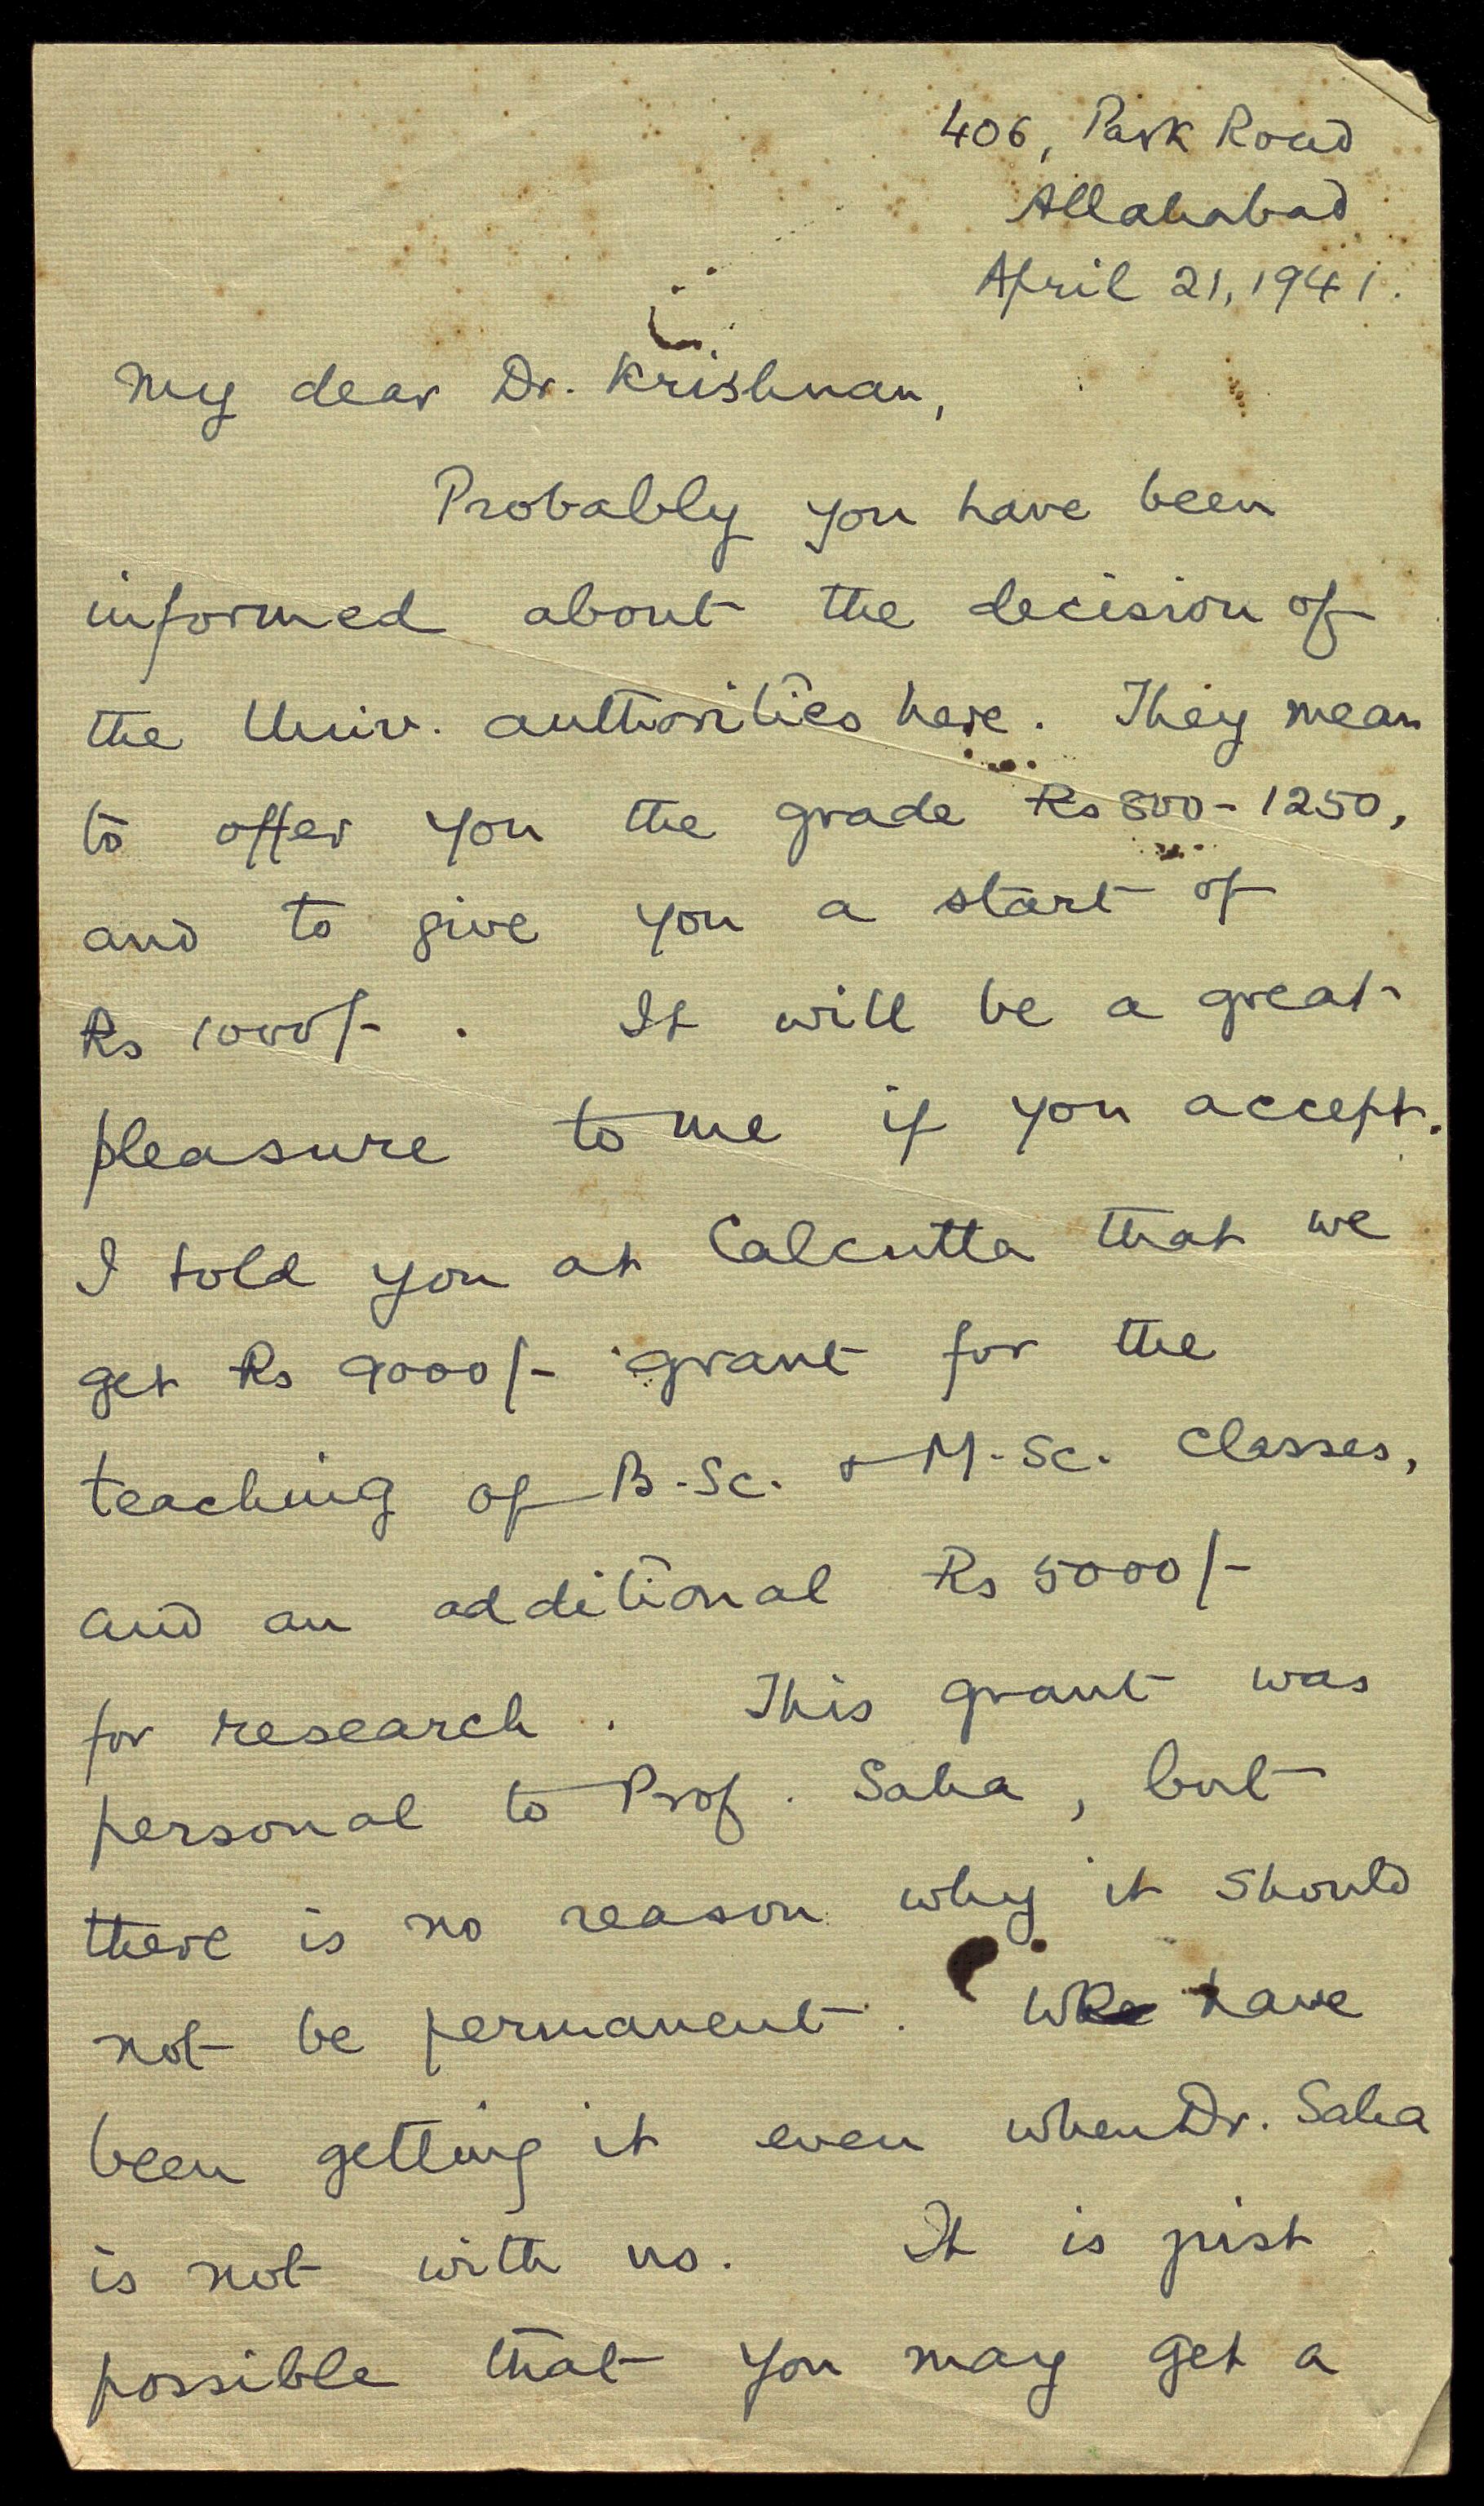 406, Park Road
Allahabad
April 21, 1941.
My dear Dr. Krishnan,
Probably you have been
informed about the decision of
the Univ. authorities here. They mean
to offer you the grade Rs 800-1250,
and to give you a start of
Rs 1000/- . It will be a great
pleasure to me if you accept.
I told you at Calcutta that we
get Rs 9000/- grant for the
teaching of B.Sc. & M.Sc. classes,
and an additional Rs 5000/-
for research. This grant was
personal to Prof. Saha, but
there is no reason why it should
not be permanent. We have
been getting it even when Dr. Saha
is not with us. It is just
possible that you may get a